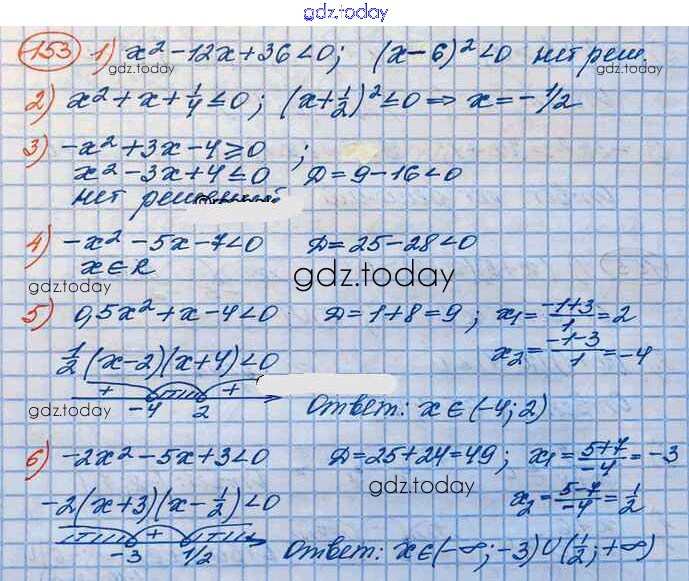 gdz.today
153 1) x² - 12x + 36 < 0; (x - 6)² < 0 нет реш.
gdz.today gdz.today
2) x² + x + 1/4 ≤ 0; (x + 1/2)² ≤ 0 ⇒ x = -1/2
3) -x² + 3x - 4 ≥ 0 ;
x² - 3x + 4 ≤ 0 D = 9 - 16 < 0
нет решений
4) -x² - 5x - 7 < 0 D = 25 - 28 < 0
x ∈ R
gdz.today gdz.today
5) 0,5x² + x - 4 < 0 D = 1 + 8 = 9 ; x₁ = (-1+3)/1 = 2
1/2 (x - 2)(x + 4) < 0 x₂ = (-1-3)/1 = -4
+ +
gdz.today
-4 2 Ответ: x ∈ (-4; 2)
6) -2x² - 5x + 3 < 0 D = 25 + 24 = 49 ; x₁ = (5+7)/-4 = -3
gdz.today
-2(x + 3)(x - 1/2) < 0 x₂ = (5-7)/-4 = 1/2
+
-3 1/2 Ответ: x ∈ (-∞; -3) ∪ (1/2; +∞)